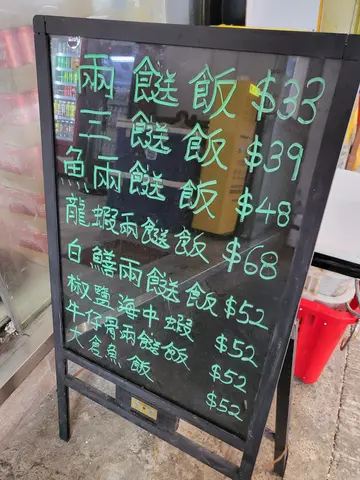 兩餸飯 $33
三餸飯 $39
魚兩餸飯 $48
龍蝦兩餸飯 $68
白鱔兩餸飯 $52
椒鹽海中蝦 $52
牛仔骨兩餸飯 $52
大倉魚飯 $52